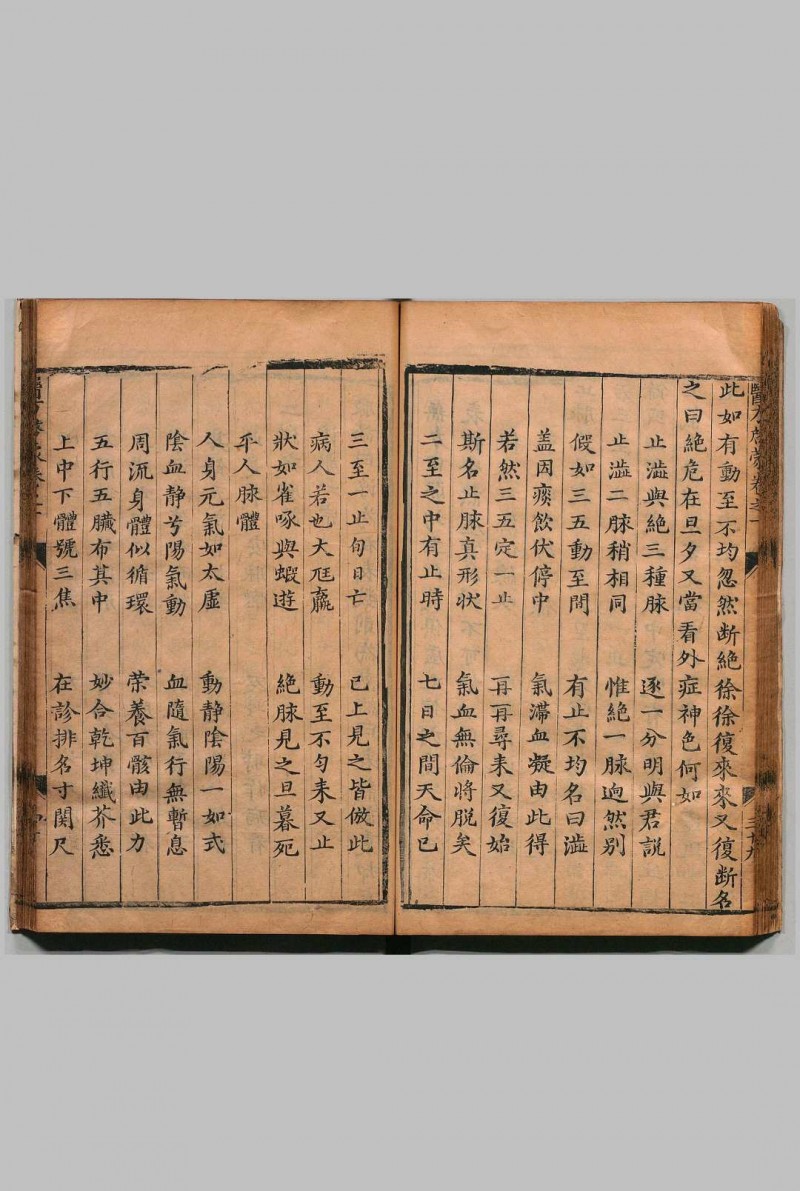 此如有動至不均忽然断絶徐徐復來來又復断名
之曰絶危在旦夕又當看外症神色何如
止澁與絶三種脉 逐一分明與君説
止澁二脉稍相同 惟絶一脉逈然别
假如三五動至間 有止不均名曰澁
盖因痰飲伏停中 氣滯血凝由此得
若然三五定一止 再再尋来又復始
斯名止脉真形状 氣血無倫将脱矣
二至之中有止時 七日之間天命已
三至一止旬日亡 已上見之皆倣此
病人若也大尫羸 動至不匀来又止
狀如雀啄與蝦遊 絶脉見之旦暮死
平人脉體
人身元氣如太虚 動静陰陽一如式
陰血静兮陽氣動 血隨氣行無暫息
周流身體似循環 荣養百骸由此力
五行五臟布其中 妙合乾坤纎芥悉
上中下體號三焦 在診排名寸関尺